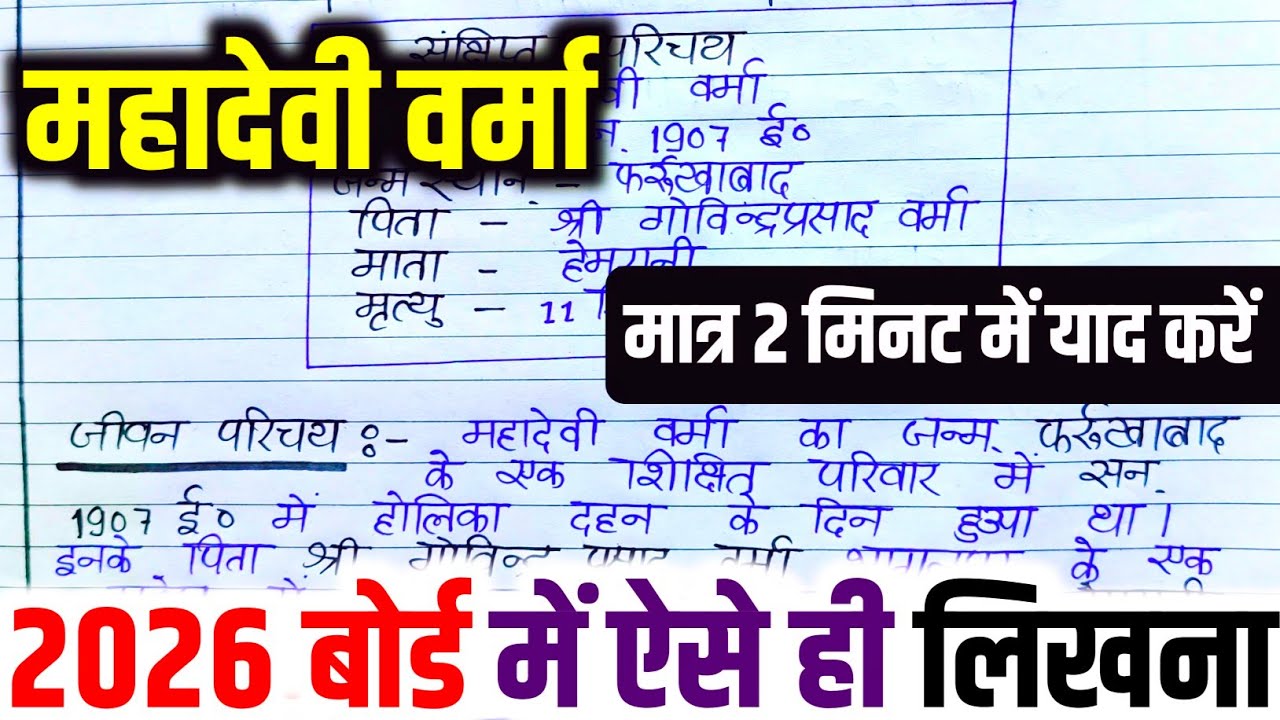 संक्षिप्त परिचय
महादेवी वर्मा
वर्मा
1907 ई०
जन्म स्थान - फर्रुखाबाद
पिता - श्री गोविन्द्रप्रसाद वर्मा
माता - हेमरानी
मृत्यु - 11
मात्र 2 मिनट में याद करें
जीवन परिचय :- महादेवी वर्मा का जन्म फर्रुखाबाद
के एक शिक्षित परिवार में सन्
1907 ई० में होलिका दहन के दिन हुआ था।
इनके पिता श्री गोविन्द प्रसाद वर्मा के एक
2026 बोर्ड में ऐसे ही लिखना